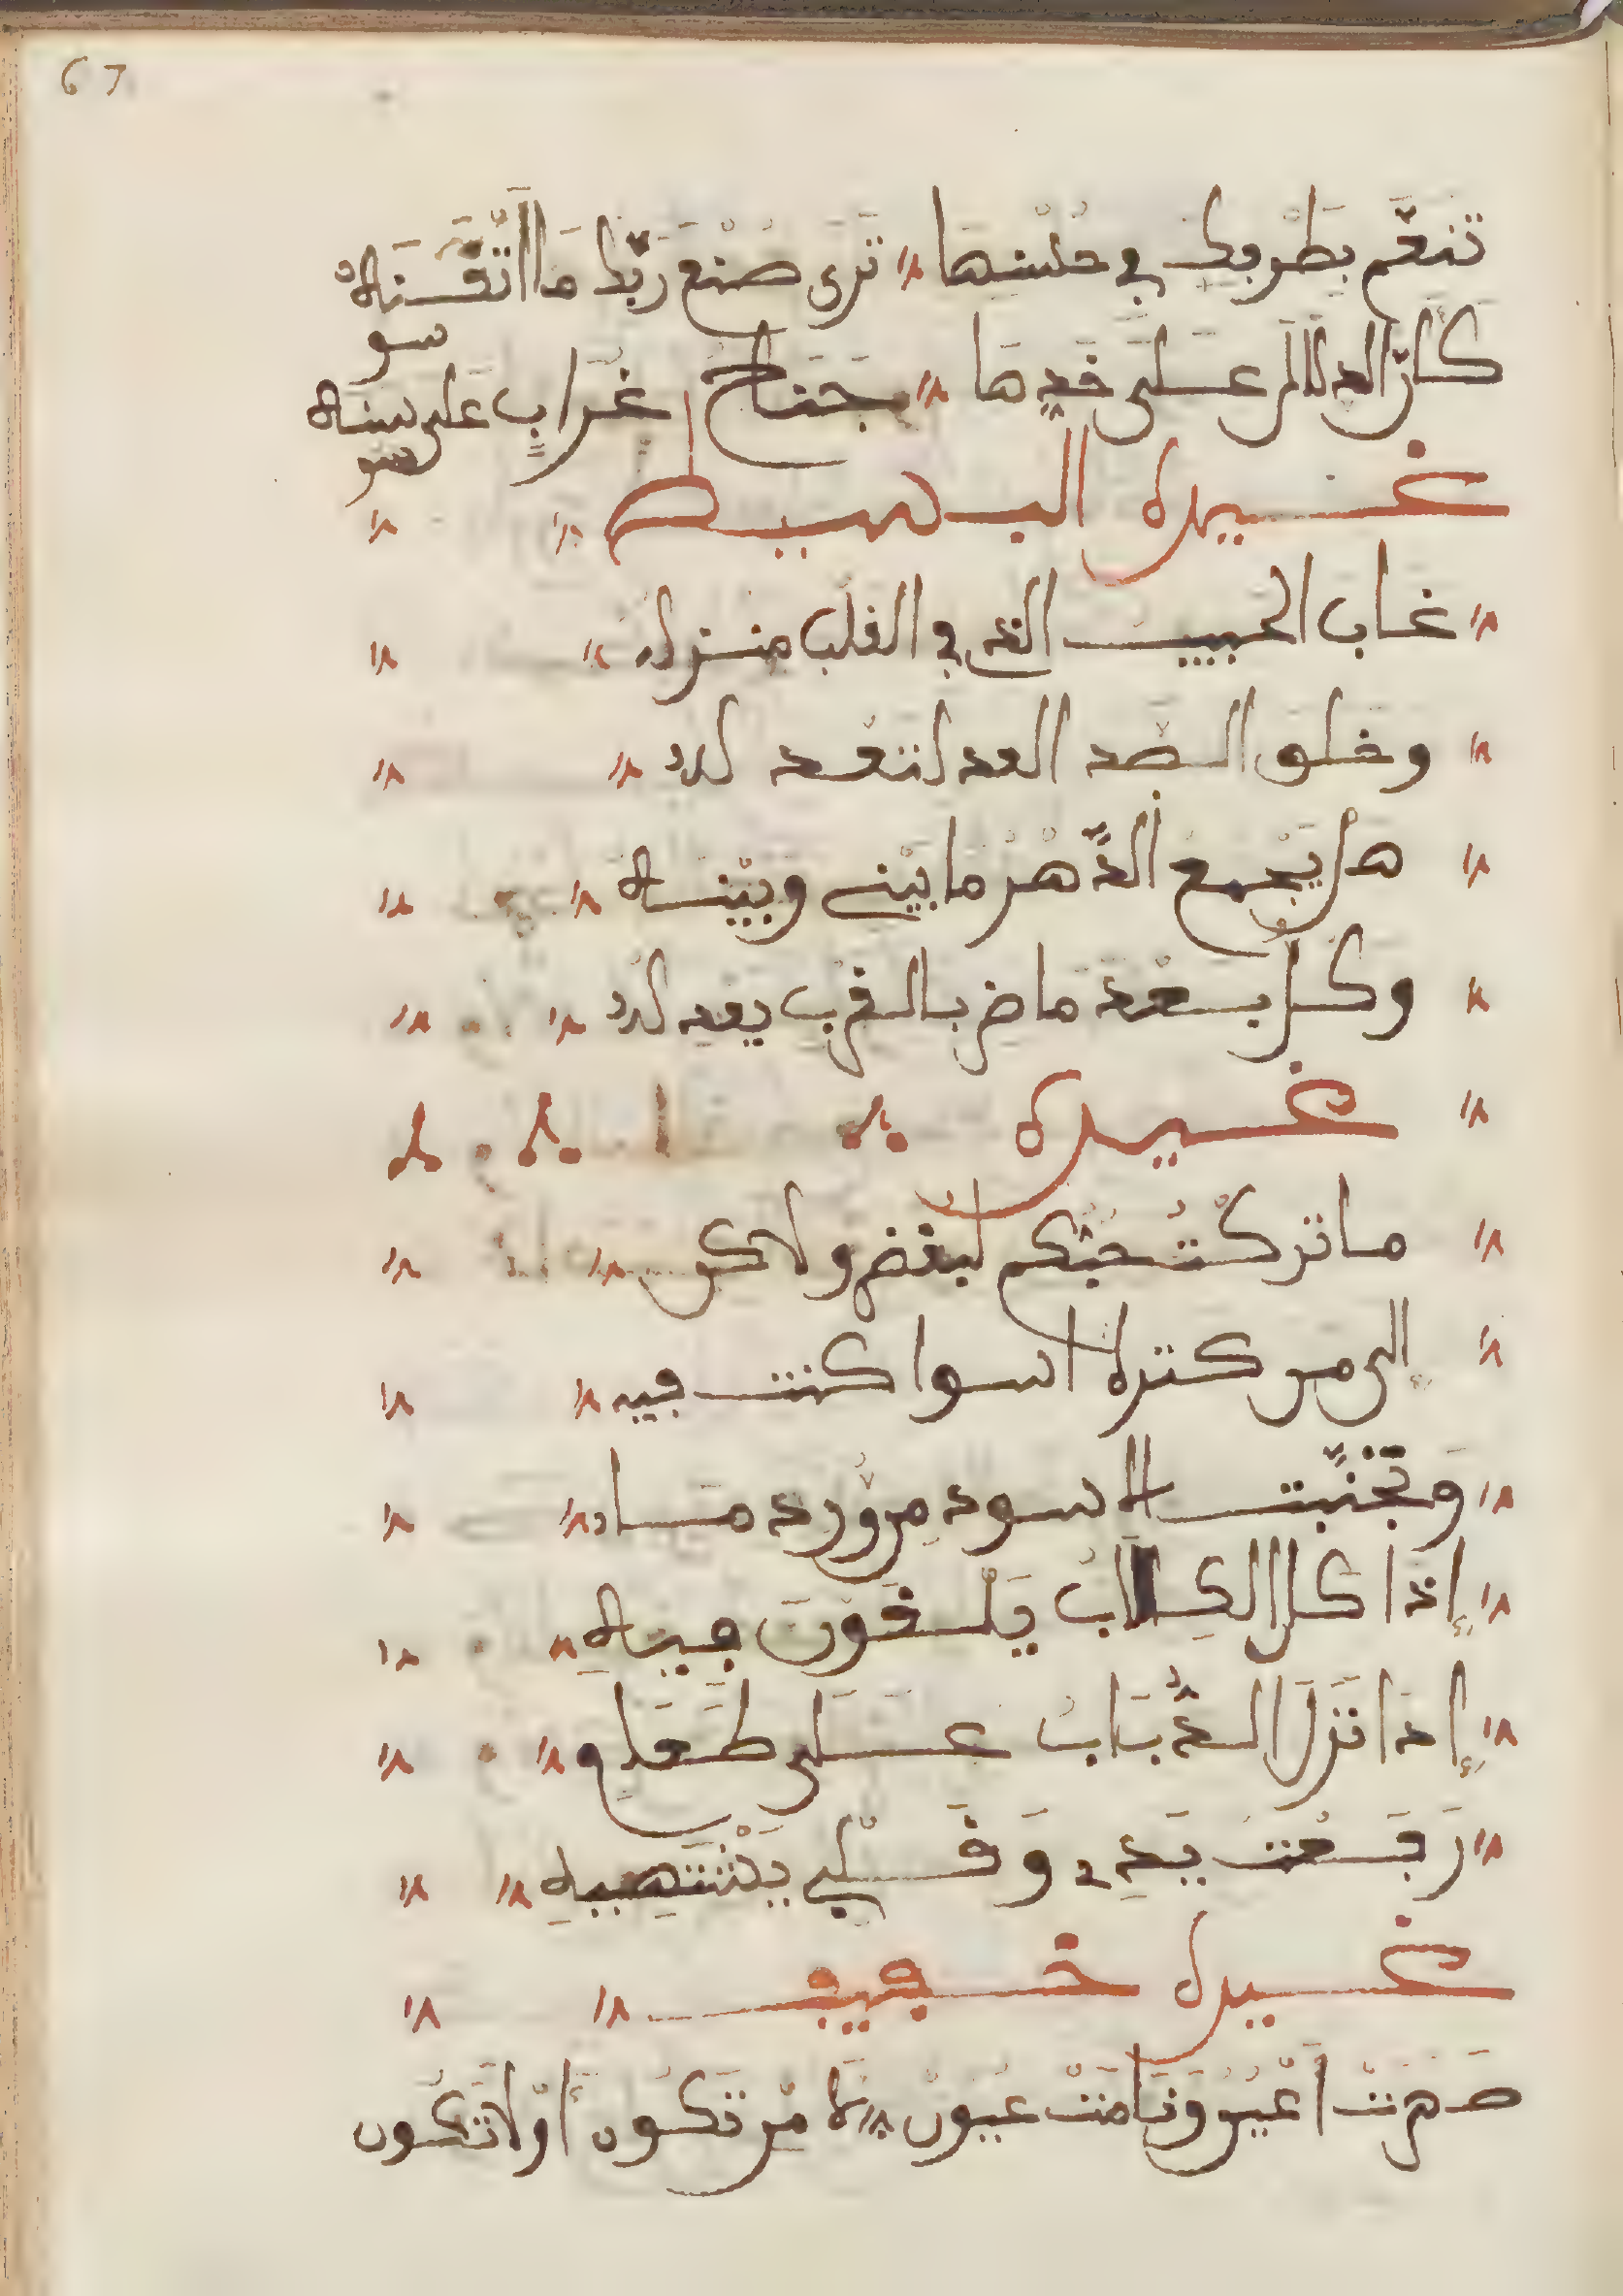 67
تنعّم بطرفك في حسنها ترى صنع ربّك ما اتقنه
سو
كأنّ الدلالم على خدها جناح غراب على سنه
سو
غيره البسيط
غاب الحبيب الذي في القلب منزله
وخلق الصد العد لتعد له
هل يجمع الدّهر ما بيني وبينه
وكل بعد ما ضر بالقرب يعد له
غيره
ما تركت حبّكم لبغض ولاكن
إلى من كثرة اسوا كنت فيه
وتجنّبت الاسود من ورد ماء
إذا كان الكلاب يلغون فيه
إذا نزل الذّباب على طعام
رفعت يدي وقلبي يشتهيه
غيره خفيف
صهرت أعين ونامت عيون لما من تكون أو لا تكون